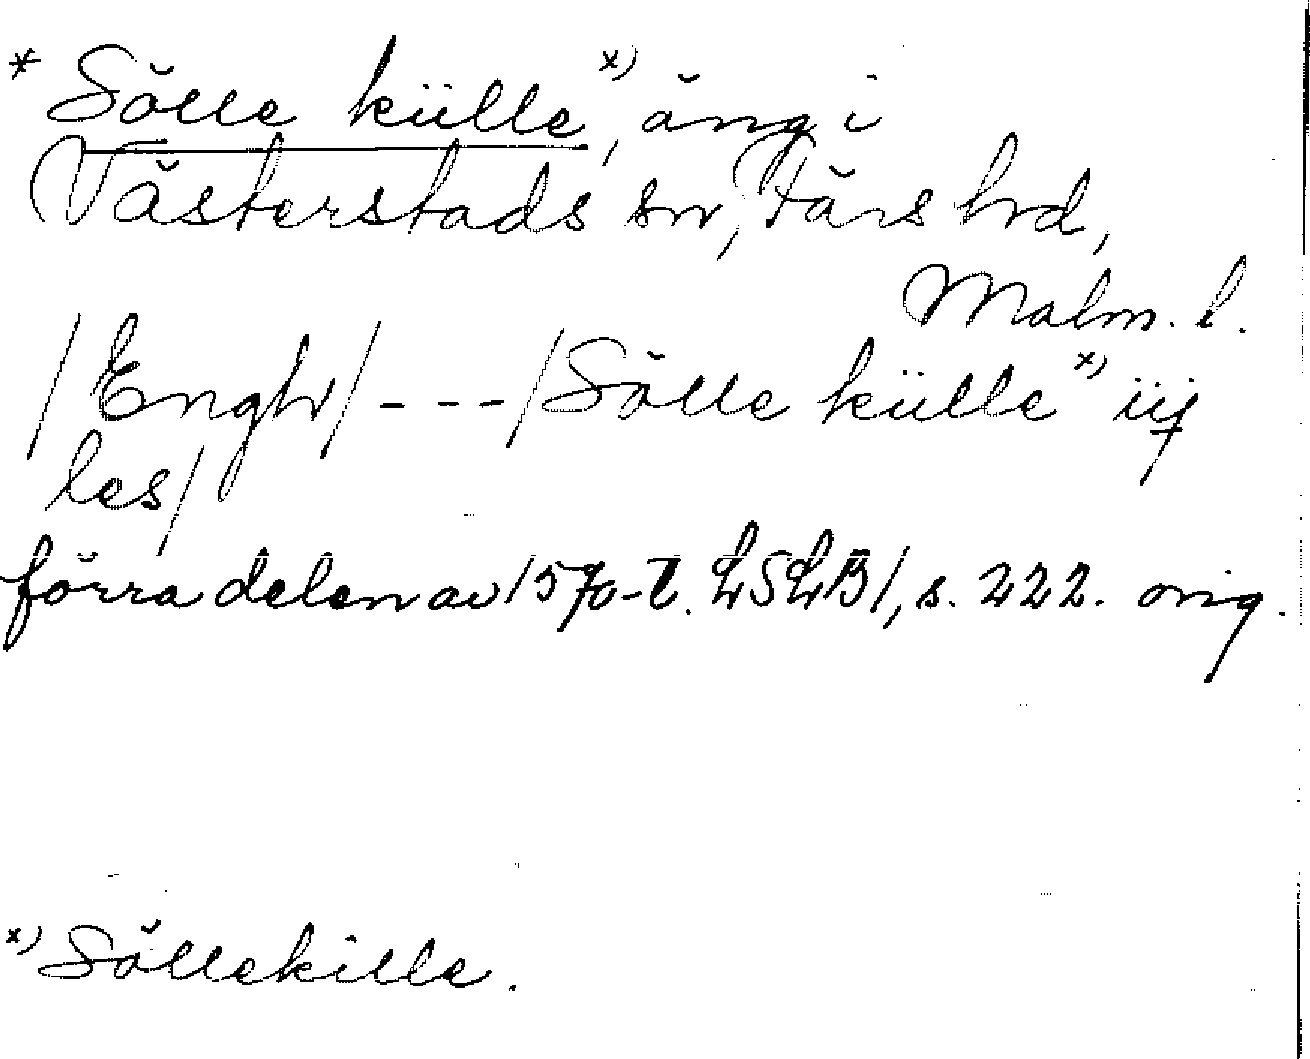 * Sölle külle x), äng i
Västerstads sn, Färs hrd,
Malm. l.
/Engh/ - - - /Sölle külle x) iij
les/
förra delen av 1570-t. LSLB1, s. 222. orig.
x) Söllekille.